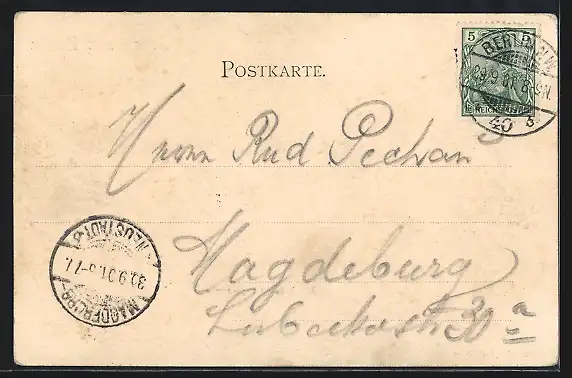 POSTKARTE.
5 5
REICHSPOST
BERLIN N.W.
29.9.01. 8-9N.
40 b
Herrn Rud. Pechan
Magdeburg
Lübeckerstr 30 a
MAGDEBURG-
NEUSTADT
30.9.01. 6-7V.